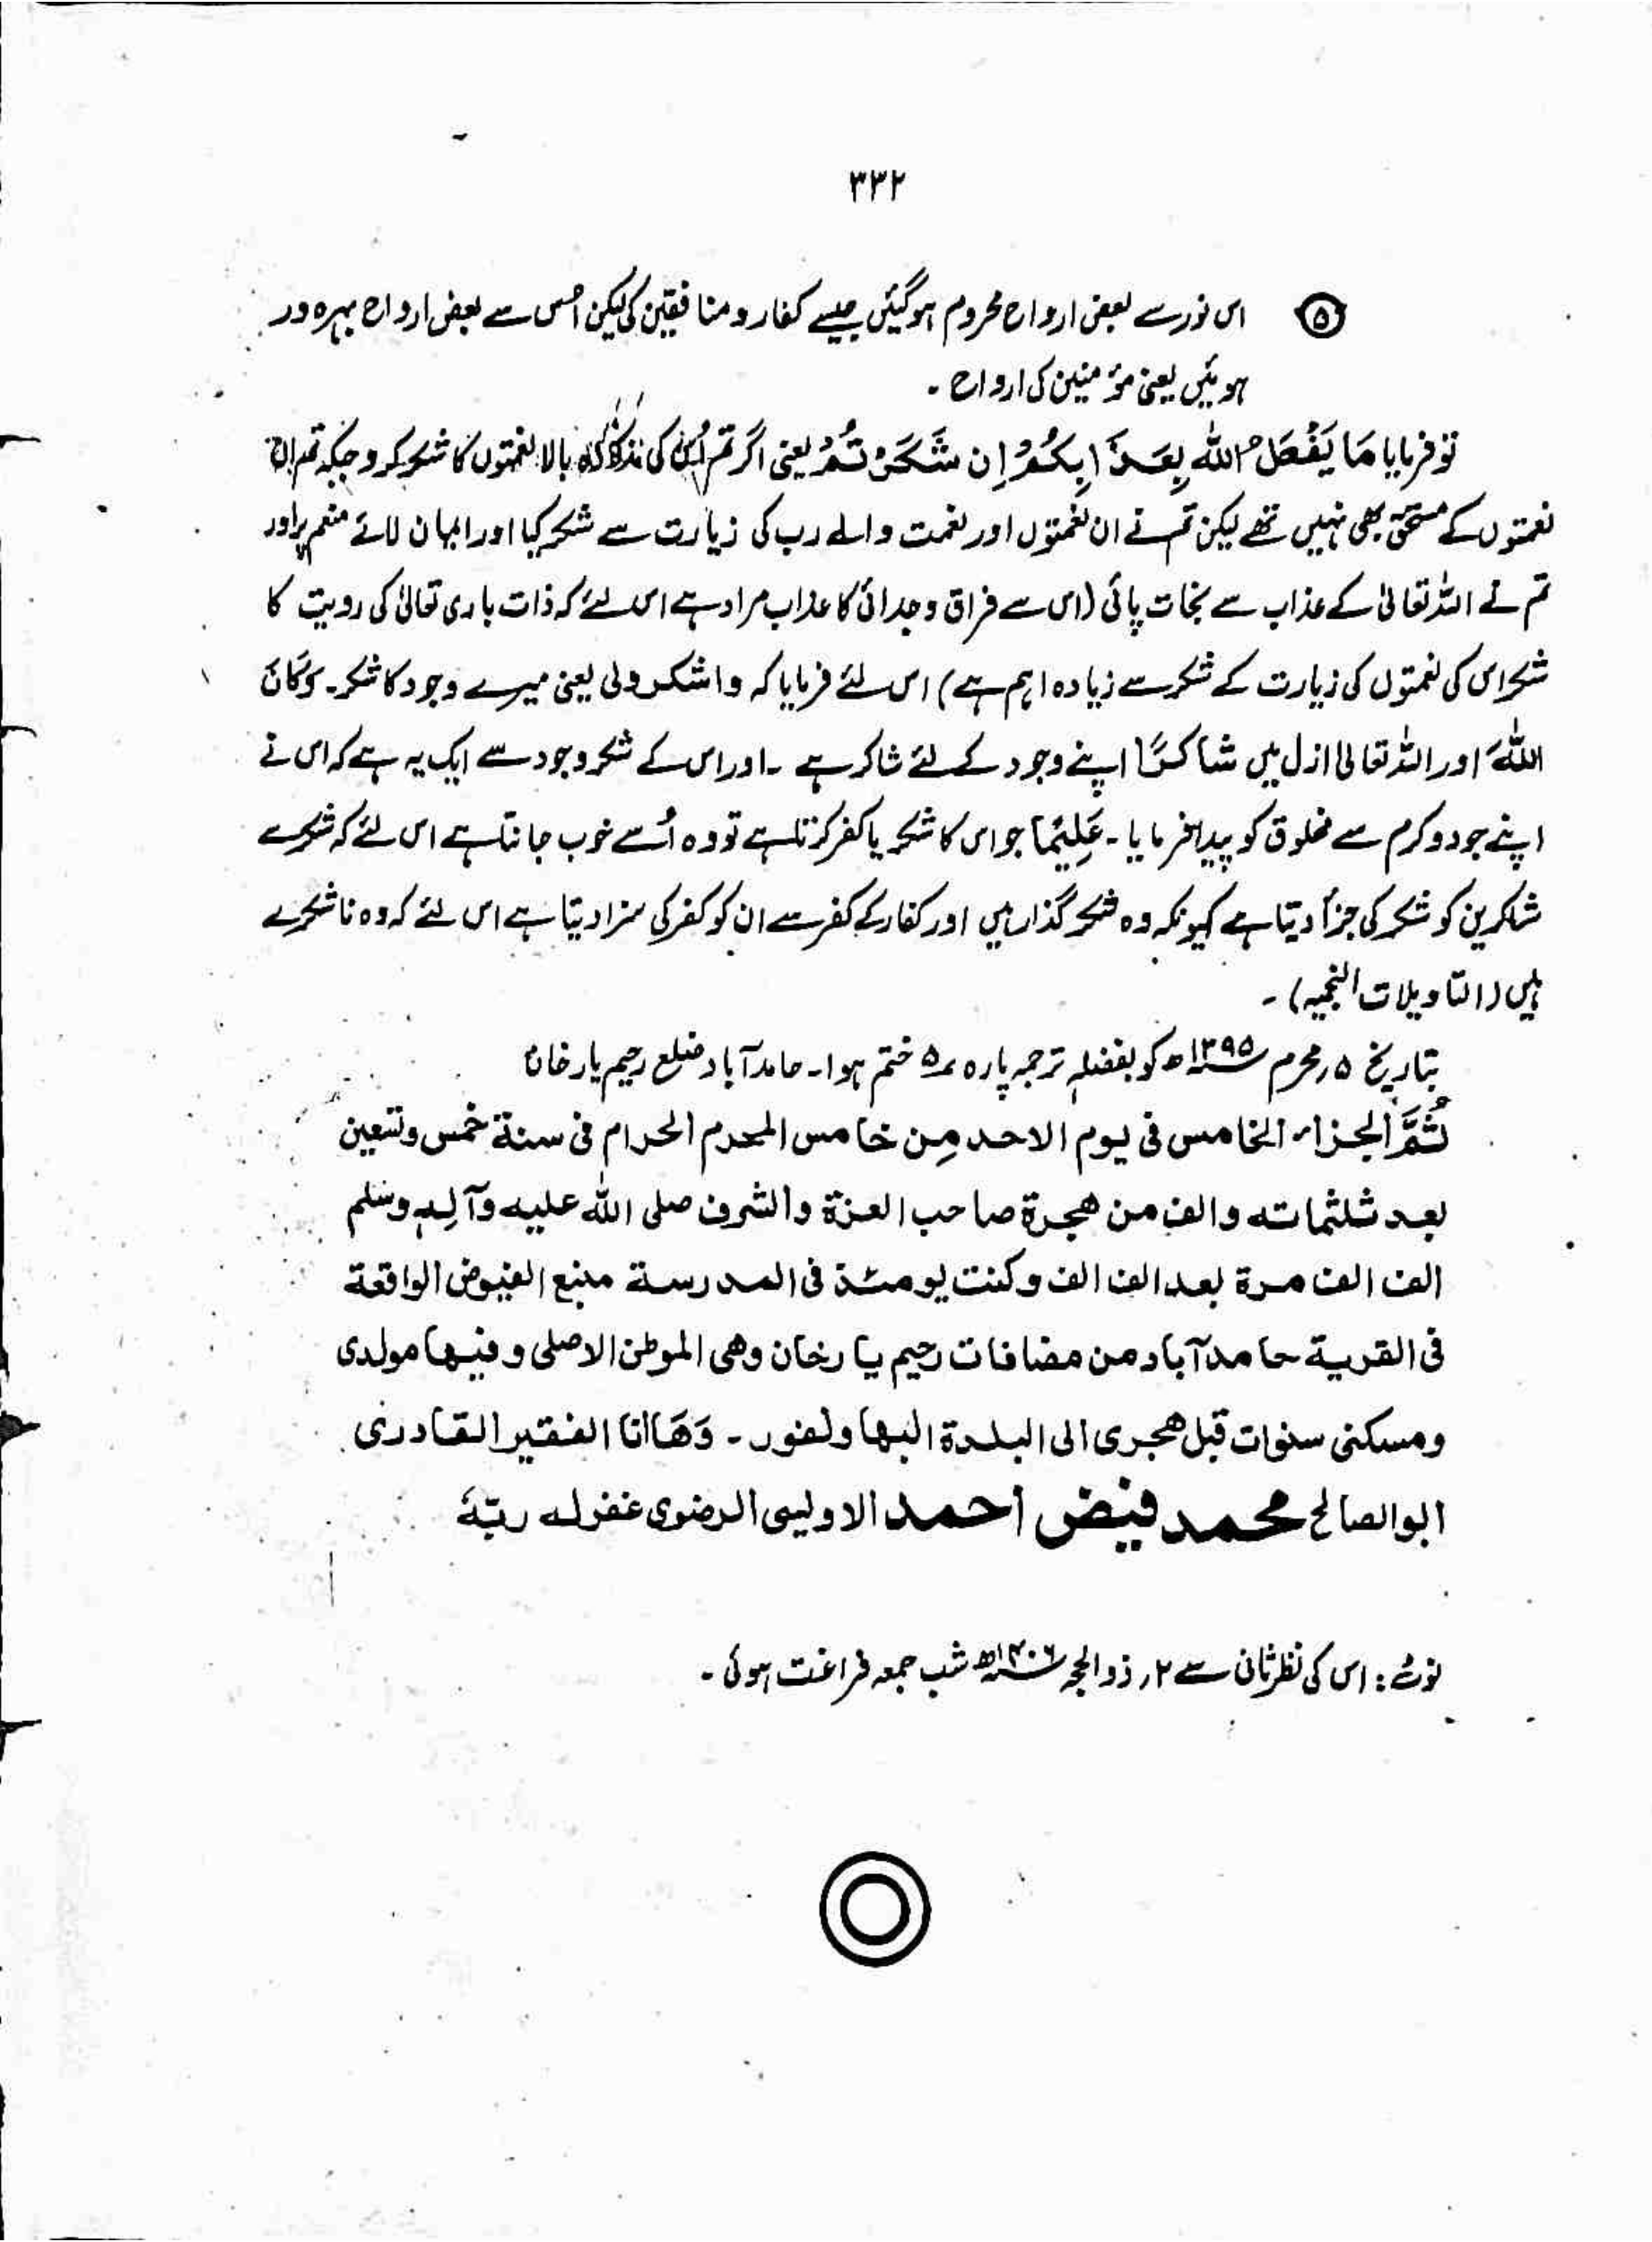 ۳۳۲
⑤ اس نور سے بعض ارواح محروم ہوگئیں جیسے کفار و منافقین کی لیکن اُس سے بعض ارواح بہرہ ور
ہوئیں یعنی مؤمنین کی ارواح ۔
تو فرمایا مَا یَفْعَلُ اللّٰہُ بِعَذَابِکُمْ اِن شَکَرْتُمْ یعنی اگر تم اُس کی بالا نعمتوں کا شکر کرو جبکہ تم ان
نعمتوں کے مستحق بھی نہیں تھے لیکن تم نے ان نعمتوں اور نعمت والے رب کی زیارت سے شکر کیا اور ایمان لائے منعم پر اور
تم نے اللہ تعالیٰ کے عذاب سے نجات پائی (اس سے فراق وجدائی کا عذاب مراد ہے اس لئے کہ ذات باری تعالیٰ کی رویت کا
شکر اس کی نعمتوں کی زیارت کے شکر سے زیادہ اہم ہے) اس لئے فرمایا کہ واشکرولی یعنی میرے وجود کا شکر۔ وَکَانَ
اللّٰہُ اور اللہ تعالیٰ ازل میں شَاکِرًا اپنے وجود کے لئے شاکر ہے ۔ اور اس کے شکر وجود سے ایک یہ ہے کہ اس نے
اپنے جود و کرم سے مخلوق کو پیدا فرمایا ۔ عَلِیْمًا جو اس کا شکر یا کفر کرتا ہے تو وہ اُسے خوب جانتا ہے اس لئے کہ شکر سے
شاکرین کو شکر کی جزأ دیتا ہے کیونکہ وہ شکر گذار ہیں اور کفار کے کفر سے ان کو کفر کی سزا دیتا ہے اس لئے کہ وہ ناشکرے
ہیں (التاویلات النجمیہ) ۔
بتاریخ ۵؍ محرم ۱۳۹۵ھ کو بفضلہٖ ترجمہ پارہ ۵ ختم ہوا ۔ حامدآباد ضلع رحیم یار خان
تُمَّ الجزاء الخامس فی یوم الاحد مِن خامس المحرم الحرام فی سنة خمس وتسعین
بعد ثلثمائته والف من ھجرة صاحب العزة والشرف صلی اللہ علیہ وآلہٖ وسلم
الف الف مرة بعد الف الف وکنت یومئذ فی المدرسة منبع الفیوض الواقعة
فی القریة حامدآباد من مضافات رحیم یارخان وھی الموطن الاصلی وفیھا مولدی
ومسکنی سنوات قبل ھجری الی البلدة البھاولفور ۔ وَھَا انا الفقیر القادری
ابوالصالح محمد فیض احمد الاویسی الرضوی غفرلہ ربّہٗ
نوٹ : اس کی نظرثانی سے ۲؍ ذوالحجہ ۱۴۰۶ھ شب جمعہ فراغت ہوئی ۔